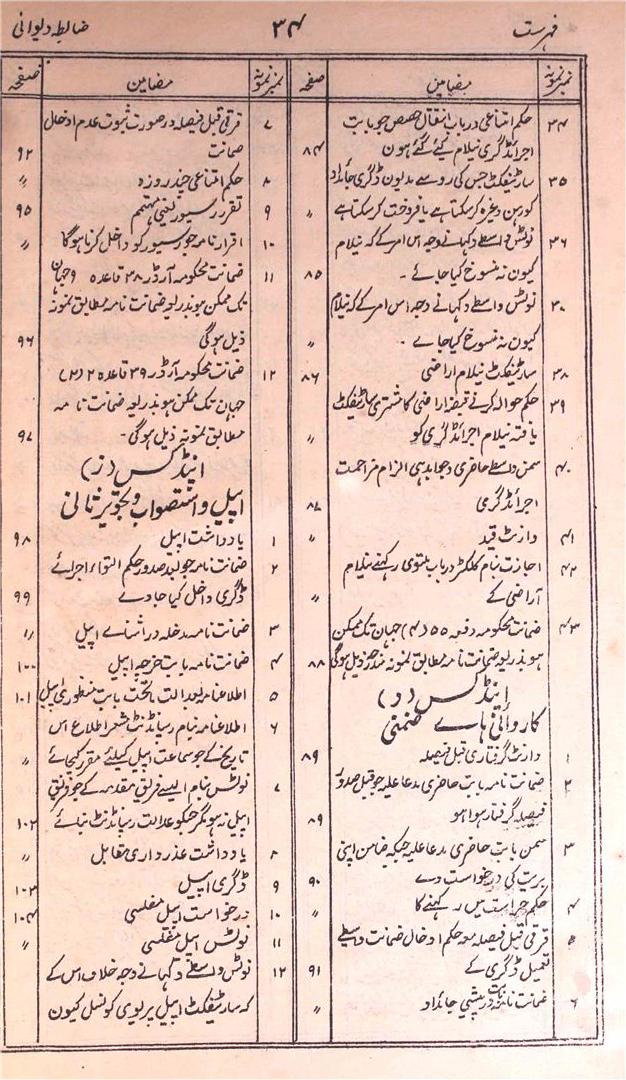 فہرست
۳۴
ضابطہ دیوانی
نمبر نمونہ
مضامین
صفحہ
۳۴ حکم امتناعی درباب انتقال حصص جو بابت
اجرائڈگری نیلام کئے گئے ہون ۸۴
۳۵ سارٹیفکٹ جس کی رو سے مدیون ڈگری جائداد
کو رہن وغیرہ کر سکتا ہے یا فروخت کر سکتا ہے "
۳۶ نوٹس واسطے دکہانے وجہ اس امر کے کہ نیلام
کیون نہ منسوخ کیا جائے ۔ ۸۵
۳۷ نوٹس واسطے دکہانے وجہ اس امر کے کہ نیلام
کیون نہ منسوخ کیا جائے ۔ "
۳۸ سارٹیفکٹ نیلام اراضی ۸۶
۳۹ حکم حوالہ کرنے قبضہ اراضی کا مشتری سارٹیفکٹ
یافتہ نیلام اجرائڈگری کو "
۴۰ سمن واسطے حاضری و جوابدہی الزام مزاحمت
اجرائڈگری ۸۷
۴۱ وارنٹ قید "
۴۲ اجازت نام کلکٹر درباب ملتوی رکہنے نیلام
آراضی کے "
۴۳ ضمانت محکومہ دفعہ ۵۵ (۴) جہان تک ممکن
ہو بذریعہ ضمانت نامہ مطابق نمونہ مندرجہ ذیل ہوگی ۸۸
اپنڈکس (و)
کاروائی ہاے ضمنی
۱ وارنٹ گرفتاری قبل فیصلہ ۸۹
۲ ضمانت نامہ بابت حاضری مدعا علیہ جو قبل صدور
فیصلہ گرفتار ہوا ہو ۸۹
۳ سمن بابت حاضری مدعا علیہ جبکہ ضامن اپنی
بریت کی درخواست دے ۹۰
۴ حکم حراست میں رکہنے کا "
۵ قرقی قبل فیصلہ مع حکم ادخال ضمانت واسطے
تعمیل ڈگری کے ۹۱
۶ ضمانت نامہ بابت پیشی جائداد "
نمبر نمونہ
مضامین
صفحہ
۷ قرقی قبل فیصلہ در صورت ثبوت عدم ادخال
ضمانت ۹۲
۸ حکم امتناعی چند روزہ "
۹ تقرر رسیور یعنی مہتمم ۹۵
۱۰ اقرار نامہ جو رسیور کو داخل کرنا ہوگا "
۱۱ ضمانت محکومہ آرڈر ۳۸ قاعدہ ۹ جہان
تک ممکن ہو بذریعہ ضمانت نامہ مطابق نمونہ
ذیل ہوگی ۹۶
۱۲ ضمانت محکومہ آرڈر ۳۹ قاعدہ ۲ (۲)
جہان تک ممکن ہو بذریعہ ضمانت نامہ
مطابق نمونہ ذیل ہوگی ۔ ۹۷
اپنڈکس (ز)
اپیل واستصواب وتجویز ثانی
۱ یادداشت اپیل ۹۸
۲ ضمانت نامہ جو بعد صدور حکم التواء اجرائے
ڈگری داخل کیا جاوے ۹۹
۳ ضمانت نامہ مدخلہ در اثناے اپیل "
۴ ضمانت نامہ بابت خرچہ اپیل ۱۰۰
۵ اطلاعنامہ بعدالت ماتحت بابت منظوری اپیل ۱۰۱
۶ اطلاعنامہ بنام رسپانڈنٹ مشعر اطلاع اس
تاریخ کے جو سماعت اپیل کیلئے مقرر کیجائے "
۷ نوٹس بنام ایسے فریق مقدمہ کے جو فریق
اپیل نہ ہو مگر جسکو عدالت رسپانڈنٹ بنائے ۱۰۲
۸ یادداشت عذر داری مقابل "
۹ ڈگری اپیل ۱۰۳
۱۰ درخواست اپیل مفلسی ۱۰۴
۱۱ نوٹس اپیل مفلسی "
۱۲ نوٹس واسطے دکہانے وجہ خلاف اس کے
کہ سارٹیفکٹ اپیل پریوی کونسل کیون